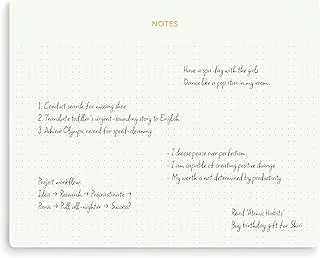 NOTES
Have a spa day with the girls
Dance like a pop star in my room
1. Conduct search for missing shoe
2. Translate toddler's urgent-sounding story to English
3. Achieve Olympic record for speed-cleaning
- I choose peace over perfection
- I am capable of creating positive change
- My worth is not determined by productivity
Project workflow:
Idea → Research → Procrastinate →
Panic → Pull all-nighter → Success?
Read 'Atomic Habits'
Buy birthday gift for Shiri